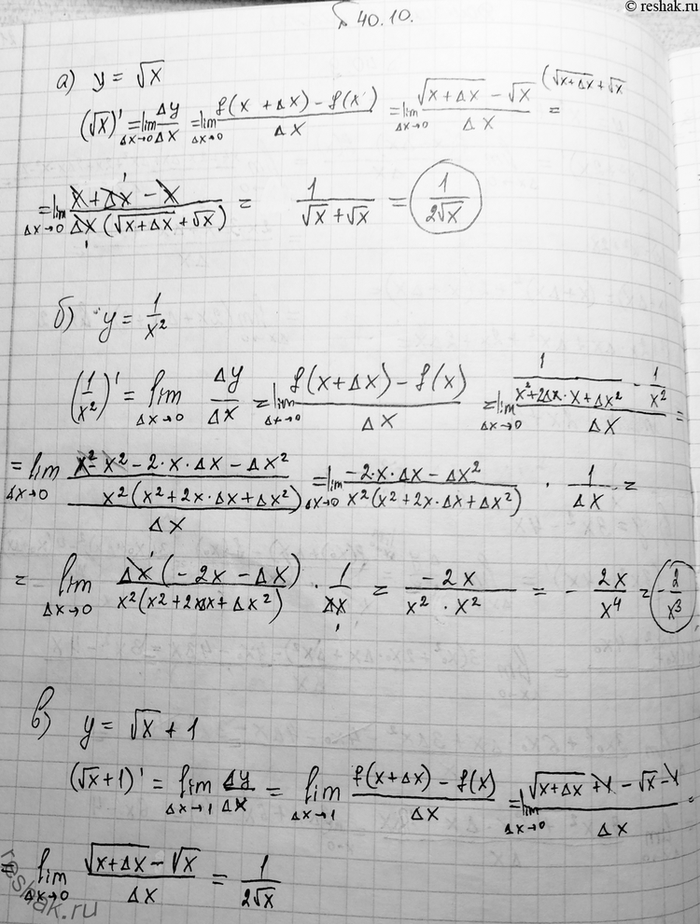 © reshak.ru
40.10.
а) y = √x
(√x)' = lim Δx→0 Δy/Δx = lim Δx→0 (f(x + Δx) − f(x))/Δx = lim Δx→0 (√(x+Δx) − √x)/Δx (√(x+Δx) + √x =
= lim Δx→0 (x + Δx − x)/(Δx (√(x+Δx) + √x)) = 1/(√x + √x) = 1/(2√x)
б) y = 1/x²
(1/x²)' = lim Δx→0 Δy/Δx = lim Δx→0 (f(x + Δx) − f(x))/Δx = lim Δx→0 (1/(x² + 2Δx · x + Δx²) − 1/x²)/Δx =
= lim Δx→0 ((x² − x² − 2·x·Δx − Δx²)/(x²(x² + 2x·Δx + Δx²)))/Δx = lim Δx→0 (−2·x·Δx − Δx²)/(x²(x² + 2x·Δx + Δx²)) · 1/Δx =
= lim Δx→0 (Δx(−2x − Δx))/(x²(x² + 2xΔx + Δx²)) · 1/Δx = −2x/(x² · x²) = − 2x/x⁴ = −2/x³
в) y = √x + 1
(√x + 1)' = lim Δx→1 Δy/Δx = lim Δx→1 (f(x + Δx) − f(x))/Δx = lim Δx→0 (√(x+Δx) + 1 − √x − 1)/Δx =
= lim Δx→0 (√(x+Δx) − √x)/Δx = 1/(2√x)
reshak.ru